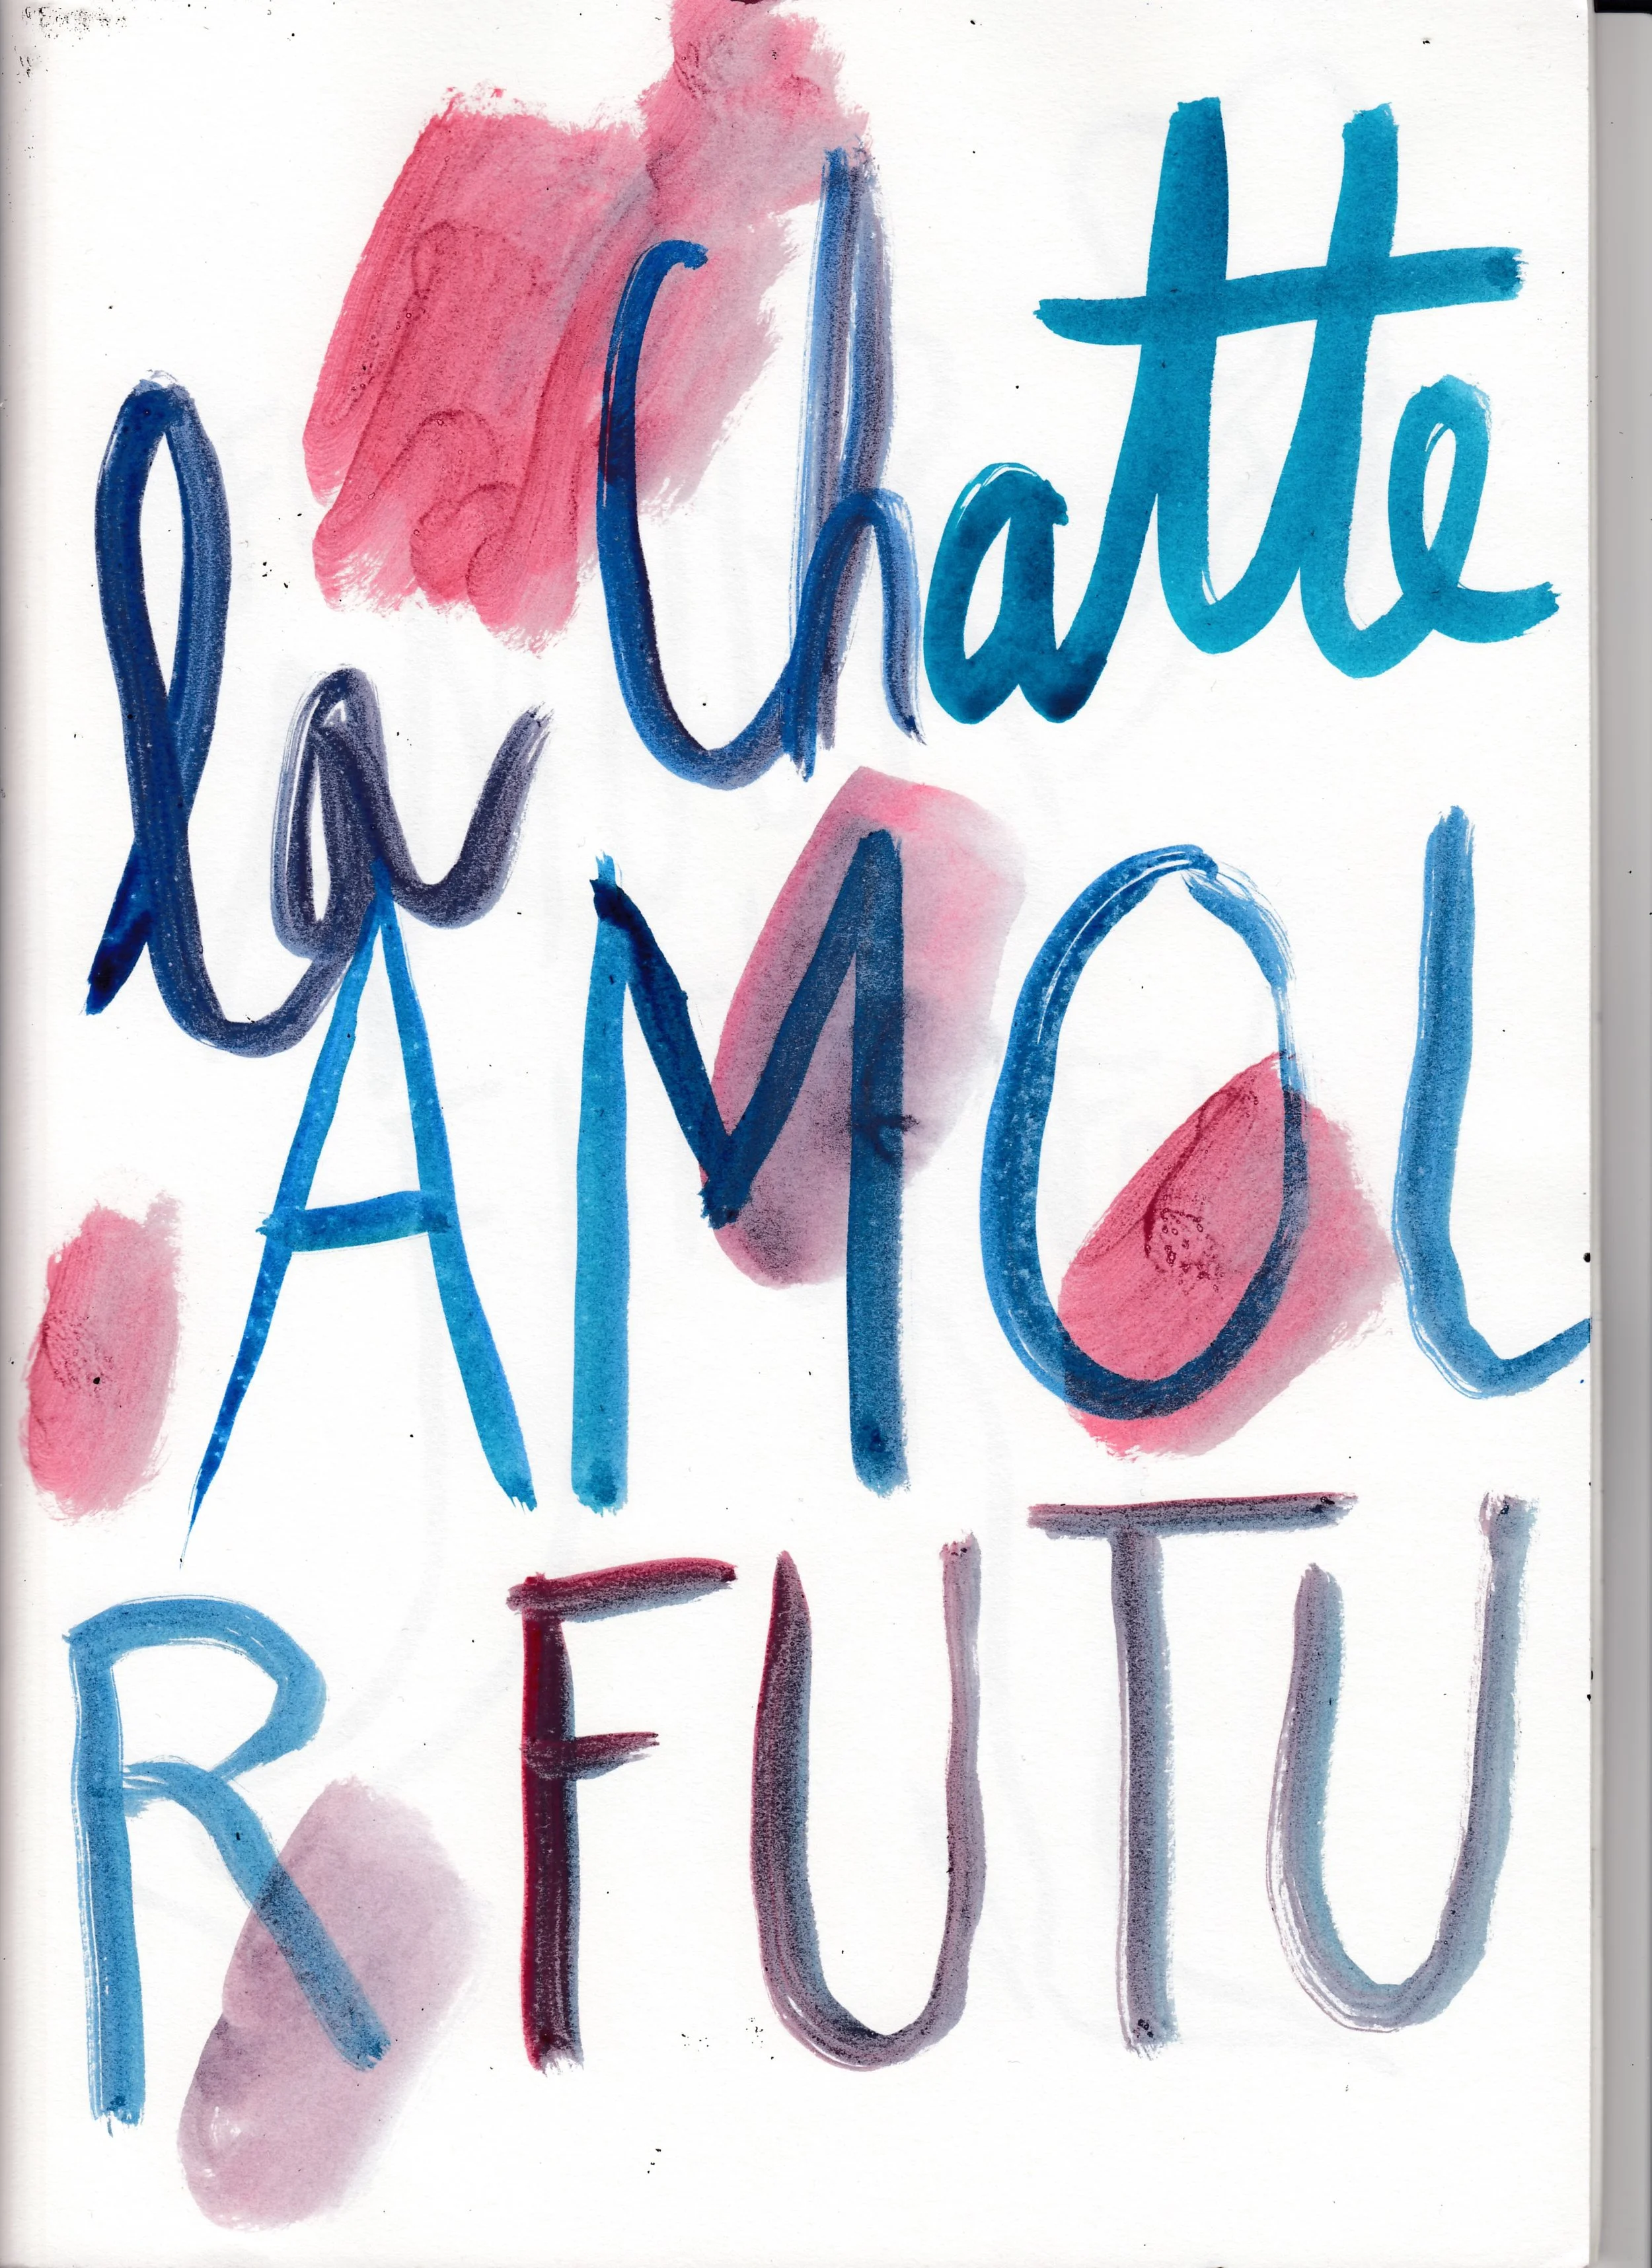 la Chatte
AMOL
R FUTU